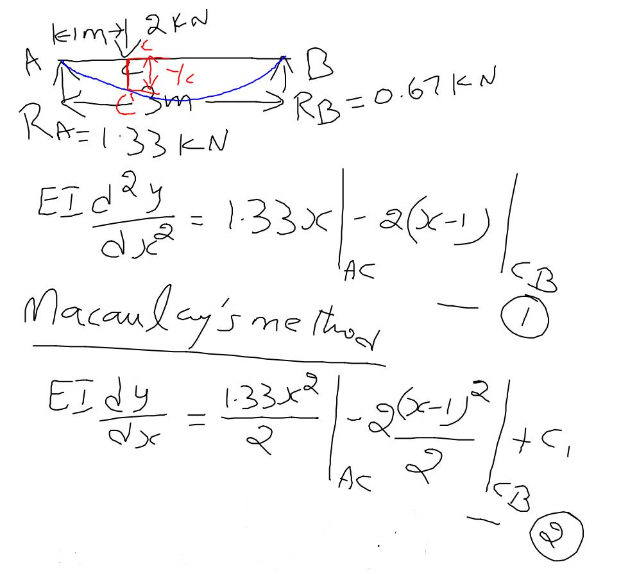 K1m→ 2KN
A C -yc B
C' 3m
RA = 1.33 KN
RB = 0.67 KN
EI d²y/dx² = 1.33x |AC - 2(x-1) |CB
— ①
Macaulay's method
EI dy/dx = 1.33x²/2 |AC - 2(x-1)²/2 |CB + C₁
— ②